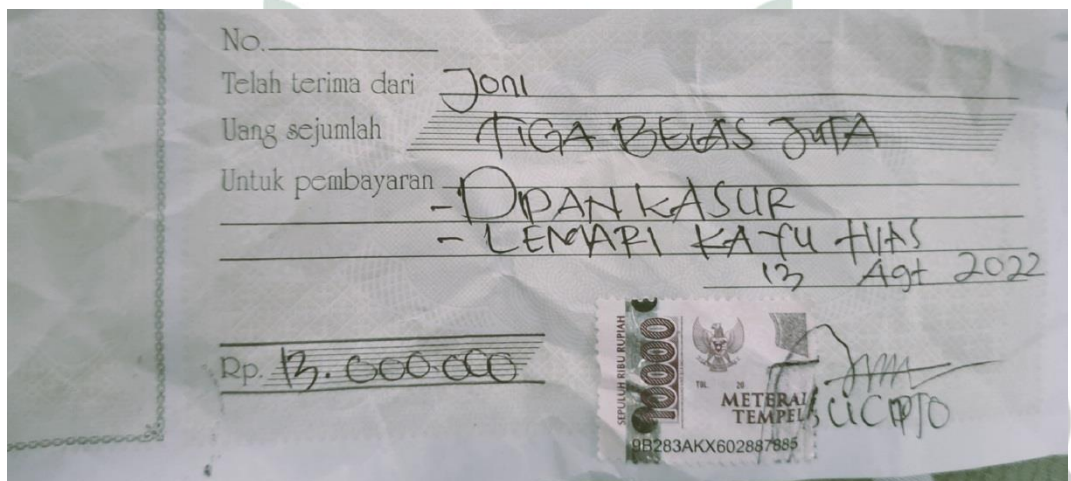 No.
Telah terima dari Joni
Uang sejumlah TIGA BELAS JUTA
Untuk pembayaran
- DIPAN KASUR
- LEMARI KAYU HIAS
13 Agt 2022
Rp. 13.000.000
SEPULUH RIBU RUPIAH
10000
TGL. 20
METERAI
TEMPEL
9B283AKX602887885
SUCIPTO